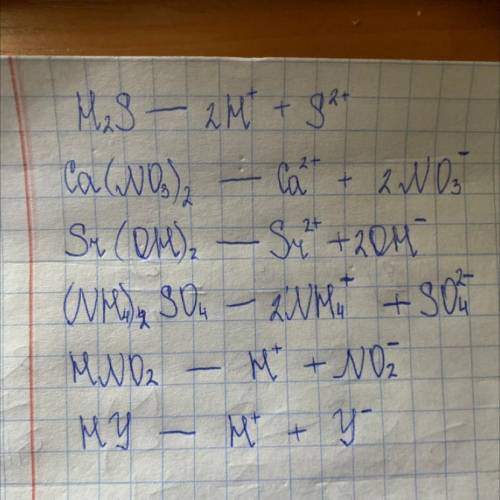 H₂S — 2H⁺ + S²⁺
Ca(NO₃)₂ — Ca²⁺ + 2NO₃⁻
Sr(OH)₂ — Sr²⁺ + 2OH⁻
(NH₄)₂SO₄ — 2NH₄⁺ + SO₄²⁻
HNO₂ — H⁺ + NO₂⁻
HY — H⁺ + Y⁻